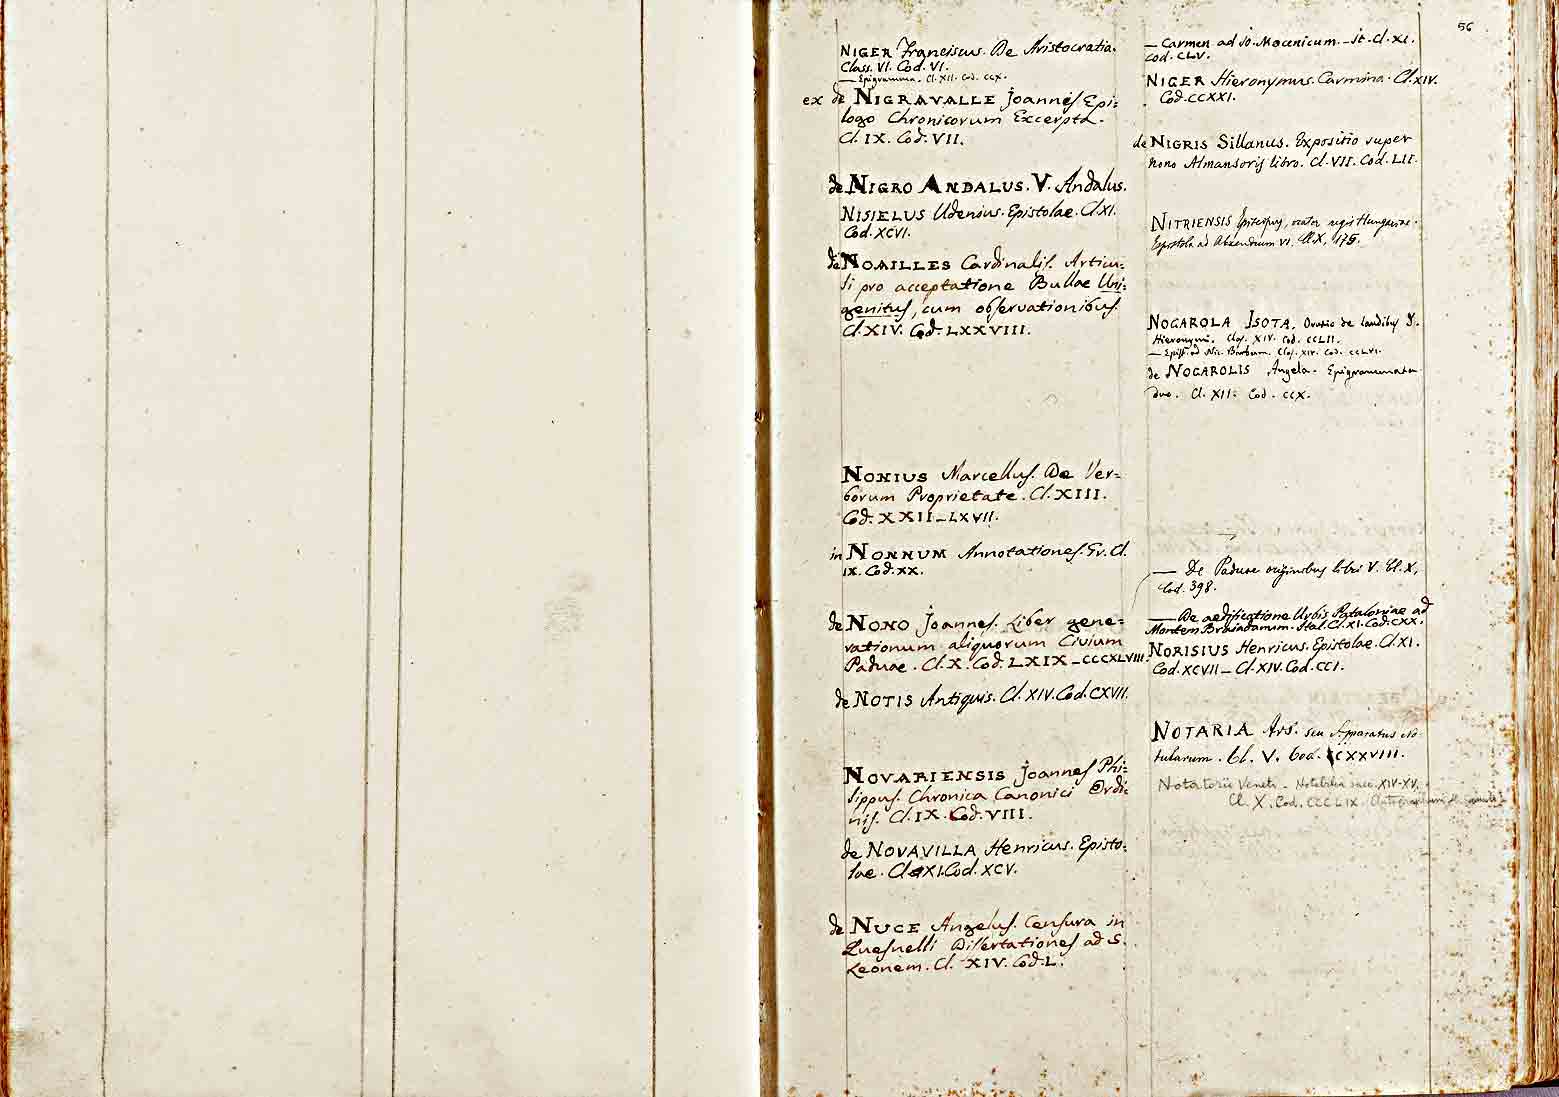 56
NIGER Franciscus. De Aristocratia.
Class. VI. Cod. VI.
— Epigramma. Cl. XII. Cod. CCX.
ex de NIGRAVALLE Joannes Epi=
logo Chronicorum Excerpta.
Cl. IX. Cod. VII.
de NIGRO ANDALUS. V. Andalus.
NISIELUS Udenius. Epistolae. Cl. XI.
Cod. XCVI.
de NOAILLES Cardinalis. Articu=
li pro acceptatione Bullae Uni=
genitus, cum observationibus.
Cl. XIV. Cod. LXXVIII.
NONIUS Marcellus. De Ver=
borum Proprietate. Cl. XIII.
Cod. XXII_LXVII.
in NONNUM Annotationes. Gr. Cl.
IX. Cod. XX.
de NONO Joannes. Liber gene=
rationum aliquorum Civium
Paduae. Cl. X. Cod. LXIX_CCCXLVIII.
de NOTIS Antiquis. Cl. XIV. Cod. CXVII.
NOVARIENSIS Joannes Phi=
lippus. Chronica Canonici Ordi=
nis. Cl. IX. Cod. VIII.
de NOVAVILLA Henricus. Episto=
lae. Cl. XI. Cod. XCV.
de NUCE Angelus. Censura in
Quesnelli Dissertationes ad S.
Leonem. Cl. XIV. Cod. L.
— Carmen ad Jo. Mocenicum. It. Cl. XI.
Cod. CLV.
NIGER Hieronymus. Carmina. Cl. XIV.
Cod. CCXXI.
de NIGRIS Sillanus. Expositio super
nono Almansoris libro. Cl. VII. Cod. LII.
NITRIENSIS Episcopus, orator regis Hungariae.
Epistola ad Alexandrum VI. Cl. X, 175.
NOGAROLA ISOTA. Oratio de laudibus S.
Hieronymi. Clas. XIV. Cod. CCLII.
— Epist. ad Nic. Barbum. Clas. XIV. Cod. CCLVI.
de NOGAROLIS Angela. Epigrammata
duo. Cl. XII. Cod. CCX.
— De Padue originibus libri V. Cl. X,
Cod. 398.
— De aedificatione Urbis Pataloniae ad
Montem Braiadanum. Ital. Cl. XI. Cod. CXX.
NORISIUS Henricus. Epistolae. Cl. XI.
Cod. XCVII_Cl. XIV. Cod. CCI.
NOTARIA Ars. seu Apparatus no
tularum. Cl. V. Cod. CXXVIII.
Notatorii Veneti. Notabilia saec. XIV-XV.
Cl. X. Cod. CCCLIX.